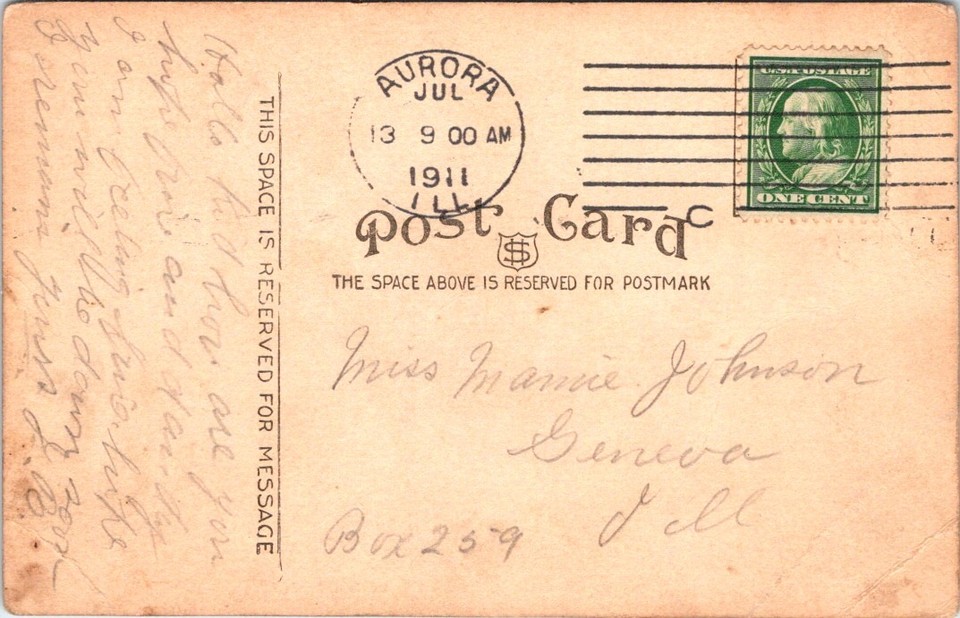 AURORA
JUL
13 9 00 AM
1911
ILL.
U.S. POSTAGE
ONE CENT
Post Card
THE SPACE ABOVE IS RESERVED FOR POSTMARK
THIS SPACE IS RESERVED FOR MESSAGE
Miss Mamie Johnson
Geneva
Ill
Box 259
Hallo kid how are you
hope fine and dandy
I am feeling fine hope
you will be down soon
I remain yours